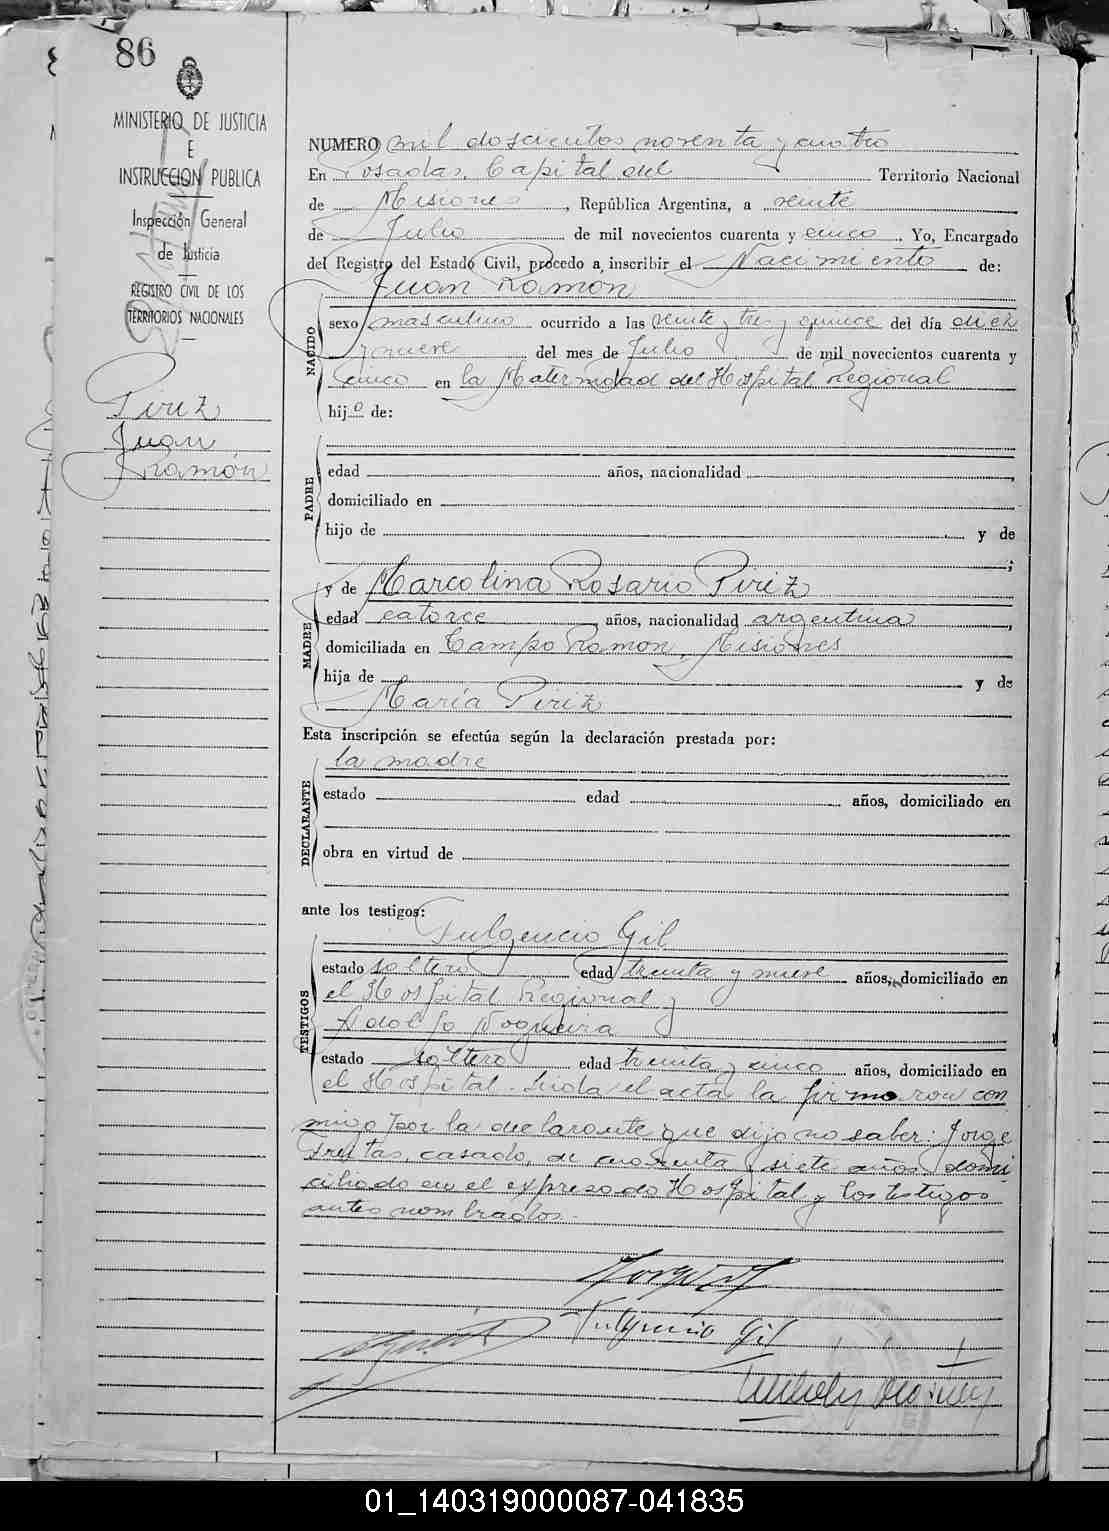 86
MINISTERIO DE JUSTICIA
E
INSTRUCCION PUBLICA
Inspección General
de Justicia
REGISTRO CIVIL DE LOS
TERRITORIOS NACIONALES
Piriz
Juan
Ramón
NUMERO mil doscientos noventa y cuatro
En Posadas, Capital del Territorio Nacional
de Misiones, República Argentina, a veinte
de Julio de mil novecientos cuarenta y cinco. Yo, Encargado
del Registro del Estado Civil, procedo a inscribir el Nacimiento de:
Juan Ramon
NACIDO
sexo masculino ocurrido a las veinte y tres y quince del día diez
y nueve del mes de Julio de mil novecientos cuarenta y
cinco en la Maternidad del Hospital Regional
hijo de:
PADRE
edad años, nacionalidad
domiciliado en
hijo de y de
MADRE
y de Marcolina Rosario Piriz
edad catorce años, nacionalidad argentina
domiciliada en Campo Ramon, Misiones
hija de y de
María Piriz
Esta inscripción se efectúa según la declaración prestada por:
la madre
DECLARANTE
estado edad años, domiciliado en
obra en virtud de
ante los testigos:
Fulgencio Gil
TESTIGOS
estado soltero edad treinta y nueve años, domiciliado en
el Hospital Regional y
Adolfo Nogueira
estado soltero edad treinta y cinco años, domiciliado en
el Hospital. Leida el acta la firmaron con
migo por la declarante que dijo no saber: Jorge
Freitas, casado, de cuarenta y siete años domi
ciliado en el expresado Hospital y los testigos
antes nombrados.
Fulgencio Gil
01_140319000087-041835